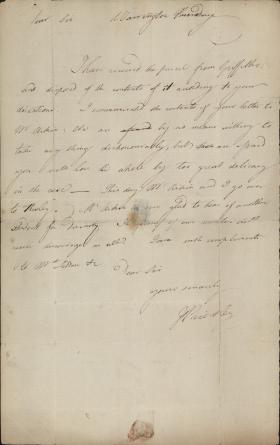 Dear Sir Warrington Thursday
I have received the parcel from Griffith
and disposed of the contents of it according to your
direction. I communicated the contents of your letter to
Mr Aikin. We are by no means willing to
take any thing dishonourably, but are afraid
you will lose the whole by too great delicacy
in the case — This day Mr Aikin and I go over
to . Mr Aikin is glad to hear of another
student for Divinity. of our number will
in all. I am with compliments
to Mrs &c
Dear Sir
yours sincerely
J Priestley